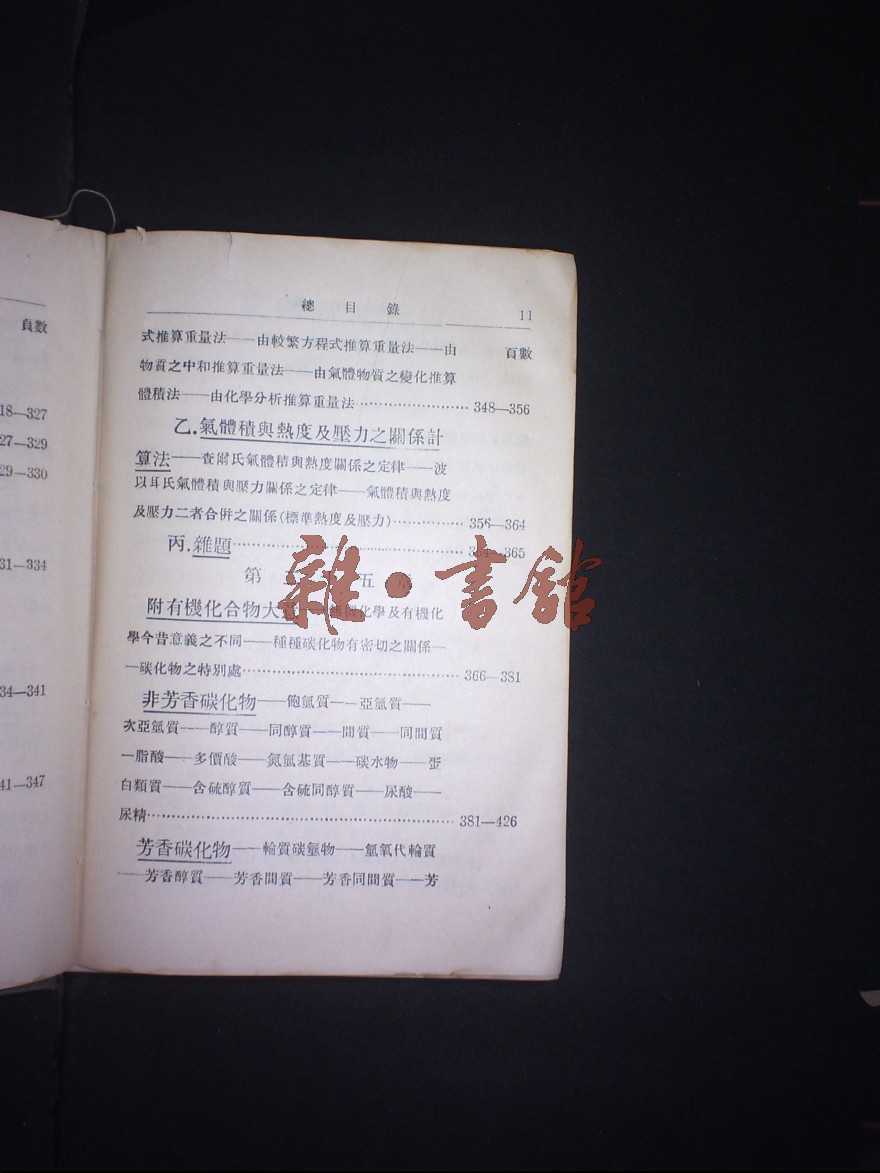 頁數
18—327
27—329
29—330
31—334
34—341
41—347
總目錄 11
式推算重量法——由較繁方程式推算重量法——由 頁數
物質之中和推算重量法——由氣體物質之變化推算
體積法——由化學分析推算重量法 348—356
乙.氣體積與熱度及壓力之關係計
算法——查爾氏氣體積與熱度關係之定律——波
以耳氏氣體積與壓力關係之定律——氣體積與熱度
及壓力二者合併之關係(標準熱度及壓力) 356—364
丙.雜題 364—365
第 五章
附有機化合物大 化學及有機化
學今昔意義之不同——種種碳化物有密切之關係—
—碳化物之特別處 366—381
非芳香碳化物——飽氫質——亞氫質——
次亞氫質——醇質——同醇質——間質——同間質
—脂酸——多價酸——氮氫基質——碳水物——蛋
白類質——含硫醇質——含硫同醇質——尿酸——
尿精 381—426
芳香碳化物——輪質碳氫物——氫氧代輪質
——芳香醇質——芳香間質——芳香同間質——芳
雜·書館